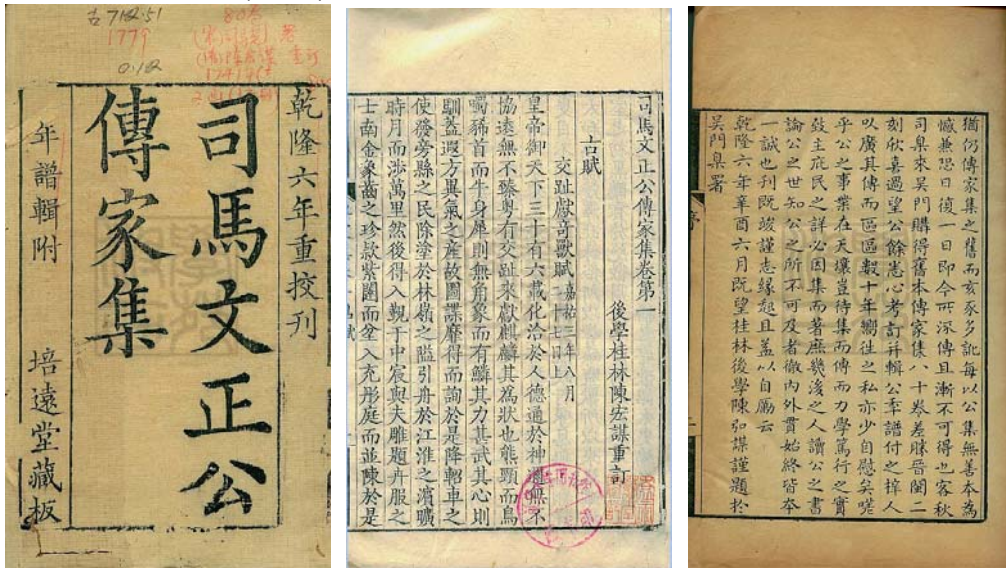 古 718.51
1779
0.182
80卷
乾隆六年重校刊
司馬文正公
傳家集
年譜輯附
培遠堂藏板
司馬文正公傳家集卷第一
後學桂林陳宏謀重訂
古賦
交趾獻奇獸賦
嘉祐三年八月
二十七日上
皇帝御天下三十有六載化洽於人德通於神邇無不
協遠無不臻粵有交趾來獻麒麟其為狀也熊頸而鳥
噣豨首而牛身犀則無角象而有鱗其力甚武其心則
馴蓋遐方異氣之產故圖諜靡得而詢於是降軺車之
使發旁縣之民除塗於林嶺之隘引舟於江淮之濱曠
時月而涉萬里然後得入覲于中宸與夫雕題卉服之
士南金象齒之珍款紫闥而坌入充彤庭而並陳於是
猶仍傳家集之舊而亥豕多訛每以公集無善本為
憾兼恐日復一日即今所深傳且漸不可得也客秋
司臬來吳門購得舊本傳家集八十卷差勝晉閩二
刻欣喜過望公餘悉心考訂并輯公年譜付之梓人
以廣其傳而區區數十年嚮往之私亦少自慰矣嗟
乎公之事業在天壤豈待集而傳而力學篤行之實
致主庇民之詳必因集而著庶幾後之人讀公之書
論公之世知公之所不可及者徹內外貫始終皆本
一誠也刊既竣謹志緣起且蓋以自勵云
乾隆六年辛酉六月既望桂林後學陳弘謀謹題於
吳門臬署